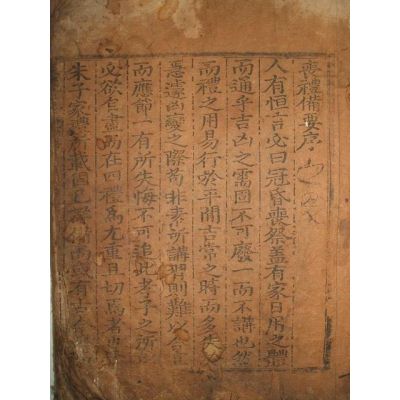 喪禮備要序
人有恒言必曰冠昏喪祭蓋有家日用之體
而通乎吉凶之需固不可廢一而不講也然
而禮之用易行於平閒吉常之時而多失
急遽凶變之際苟非素所講習則難以合宜
而應節一有所失悔不可追此孝子之所
必欲自盡而在四禮爲尤重且切焉者
朱子家禮所載固已詳備而或有古今